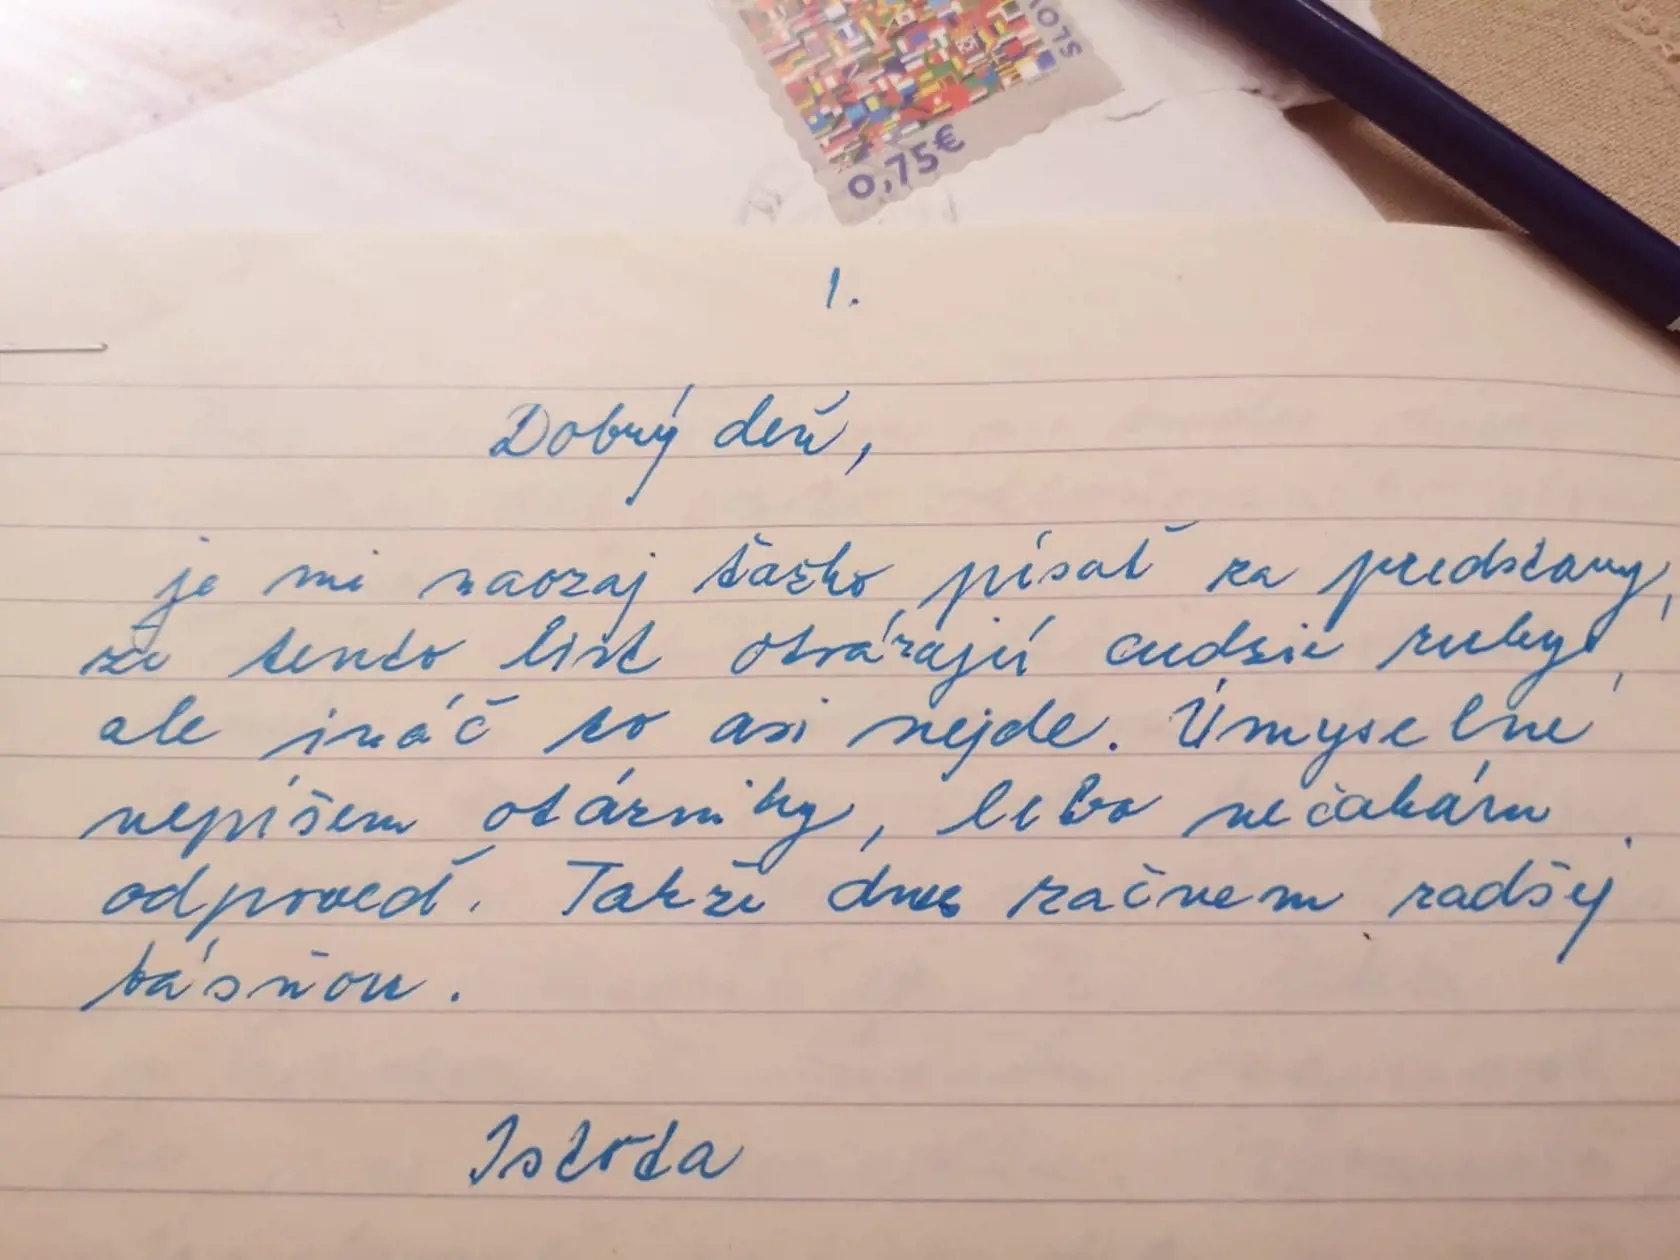 SLOV
0,75€
1.
Dobrý deň,
je mi naozaj ťažko písať za predstavy,
že tento list otvárajú cudzie ruky,
ale ináč to asi nejde. Úmyselne
nepíšem otázniky, lebo nečakám
odpoveď. Takže dnes začnem radšej
básňou.
Istota